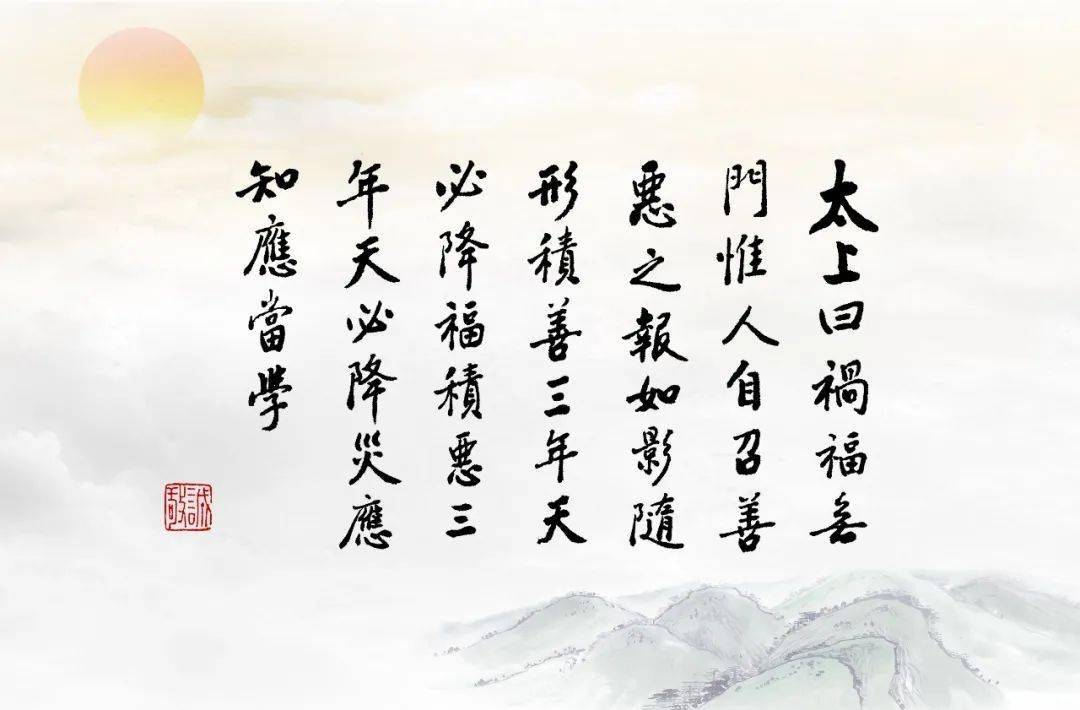 太上曰禍福無
門惟人自召善
惡之報如影隨
形積善三年天
必降福積惡三
年天必降災應
知應當學